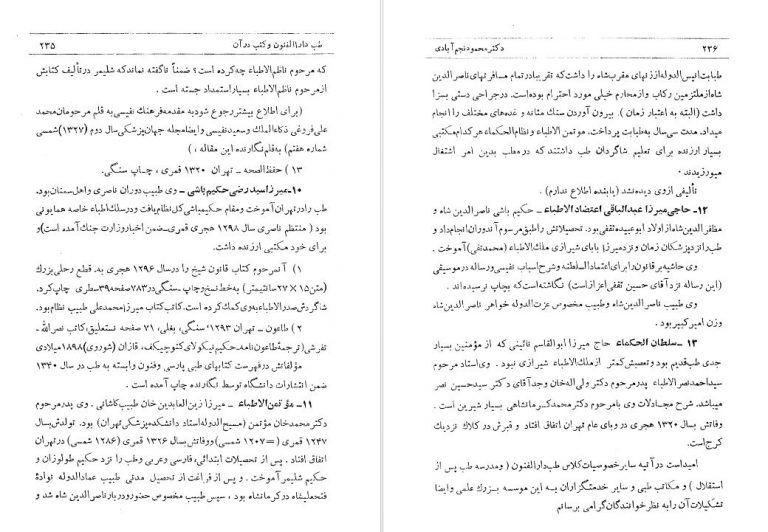 ۲۳۶ دکتر محمود نجم‌آبادی
طبابت انیس‌الدوله از زنهای مقرب شاه را داشت که تقریبا در تمام مسافرتهای ناصرالدین
شاه از ملتزمین رکاب و از محارم خیلی مورد احترام بوده است. در جراحی دستی بسزا
داشت (البته به اعتبار زمان). بیرون آوردن سنگ مثانه و غده‌های مختلف را انجام
میداد. مدت سی سال به طبابت پرداخت. موتمن‌الاطباء و نظام‌الحکماء هر کدام مکتبی
بسیار ارزنده برای تعلیم شاگردان طب داشتند که در مطب بدین امر اشتغال
میورزیدند.
تألیفی از وی دیده نشد (یا بنده اطلاع ندارم).
۱۲- حاجی میرزا عبدالباقی اعتضاد الاطباء - حکیم باشی ناصرالدین شاه و
مظفرالدین شاه از اولاد ابوعبیده ثقفی بود. تحصیلاتش را بطبق مرسوم آندوران انجام داد و
طب را نزد پزشکان زمان و نزد میرزا بابای شیرازی ملک‌الاطباء (محمد تقی) آموخت.
وی حاشیه بر قانون را برای اعتماد السلطنه و شرح اسباب نفیسی و رساله در موسیقی
(این رساله نزد آقای حسین ثقفی اعزاز است) نگاشته است که بچاپ نرسیده‌اند.
وی طبیب ناصرالدین شاه و طبیب مخصوص عزت الدوله خواهر ناصرالدین شاه
وزن امیر کبیر بود.
۱۳ - سلطان الحکماء حاج میرزا ابوالقاسم نائینی که از مؤمنین بسیار
جدی طب قدیم بود و تعصبش کمتر از ملک‌الاطباء شیرازی نبود. وی استاد مرحوم
سید احمد ناصر الاطباء پدر مرحوم دکتر ولی‌اله خان وجد آقای دکتر سید حسین نصر
میباشد. شرح مجادلات وی با مرحوم دکتر محمد کرمانشاهی بسیار شیرین است.
وفاتش بسال ۱۳۲۰ هجری در وبای عام تهران اتفاق افتاد و قبرش در کلاک نزدیک
کرج است.
امید است در آتیه سایر خصوصیات کلاس طب دارالفنون (و مدرسه طب پس از
استقلال) و مکاتب طبی و سایر خدمتگزاران به این موسسه بزرگ علمی وایضا
تشکیلات آن را به نظر خوانندگان گرامی برسانم
طب دارالفنون و کتب در آن ۲۳۵
که مرحوم ناظم‌الاطباء چه کرده است؟ ضمناً ناگفته نماند که شلیمر در تألیف کتابش
از مرحوم ناظم‌الاطباء بسیار استمداد جسته است.
(برای اطلاع بیشتر رجوع شود به مقدمه فرهنگ نفیسی به قلم مرحومان محمد
علی فروغی ذکاءالملک و سعید نفیسی وایضا مجله جهان پزشکی سال دوم (۱۳۲۷) شمسی
شماره هفتم) به قلم نگارنده این مقاله،)
۱۳) حفظ الصحه - تهران ۱۳۲۰ قمری، چاپ سنگی.
۱۰- میرزا سید رضی حکیم باشی - وی طبیب دوران ناصری و اهل سمنان بود.
طب را در تهران آموخت و مقام حکیمباشی کل نظام یافت و در سلک اطباء خاصه همایونی
بود (منتظم ناصری سال ۱۲۹۸ هجری قمری - ضمن اخبار وزارت جنگ آمده است) و
برای خود مکتبی ارزنده داشت.
۱) آن مرحوم کتاب قانون شیخ را در سال ۱۲۹۶ هجری به قطع رحلی بزرگ
(متن ۱۵ × ۲۷ سانتیمتر) به خط نسخ و چاپ سنگی در ۷۸۳ صفحه ۳۹ سطری چاپ کرد.
شاگردش صدرالاطباء به وی کمک کرده است. کاتب کتاب میرزا محمد علی طبیب نظام بود.
۲) طاعون - تهران ۱۲۹۳ سنگی، بغلی، ۷۱ صفحه نستعلیق، کاتب نصرالله
تفرشی (ترجمهٔ طاعون نامه، حکیم نیکولای کئوچیکف، قازان (شوروی) ۱۸۹۸ میلادی
مؤلفاتش در فهرست کتابهای طبی پارسی و فنون وابسته به طب در سال ۱۳۴۰
ضمن انتشارات دانشگاه توسط نگارنده چاپ آمده است.
۱۱- مؤتمن الاطباء - میرزا زین‌العابدین خان طبیب کاشانی. وی پدر مرحوم
دکتر محمد خان مؤتمن (مسیح الدوله استاد دانشکده پزشکی تهران) بود. تولدش بسال
۱۲۴۷ قمری (= ۱۲۰۷ شمسی) و وفاتش بسال ۱۳۲۶ قمری (۱۲۸۶ شمسی) در تهران
اتفاق افتاد. پس از تحصیلات ابتدائی، فارسی و عربی وطب را نزد حکیم طولوزان و
حکیم شلیمر آموخت. و پس از فراغت از تحصیل مدتی طبیب عماد الدوله نوادهٔ
فتحعلیشاه در کرمانشاه بود، سپس طبیب مخصوص حضور و دربار ناصرالدین شاه شد و